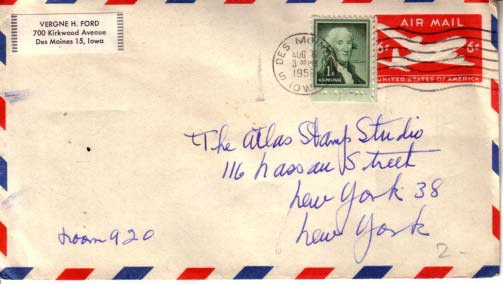 VERGNE H. FORD
700 Kirkwood Avenue
Des Moines 15, Iowa
DES MO
AUG
3 30 PM
195
IOWA
1¢
U.S. POSTAGE
AIR MAIL
6¢ 6¢
UNITED STATES OF AMERICA
The Atlas Stamp Studio
116 Nassau Street
New York 38
New York
room 920
2-